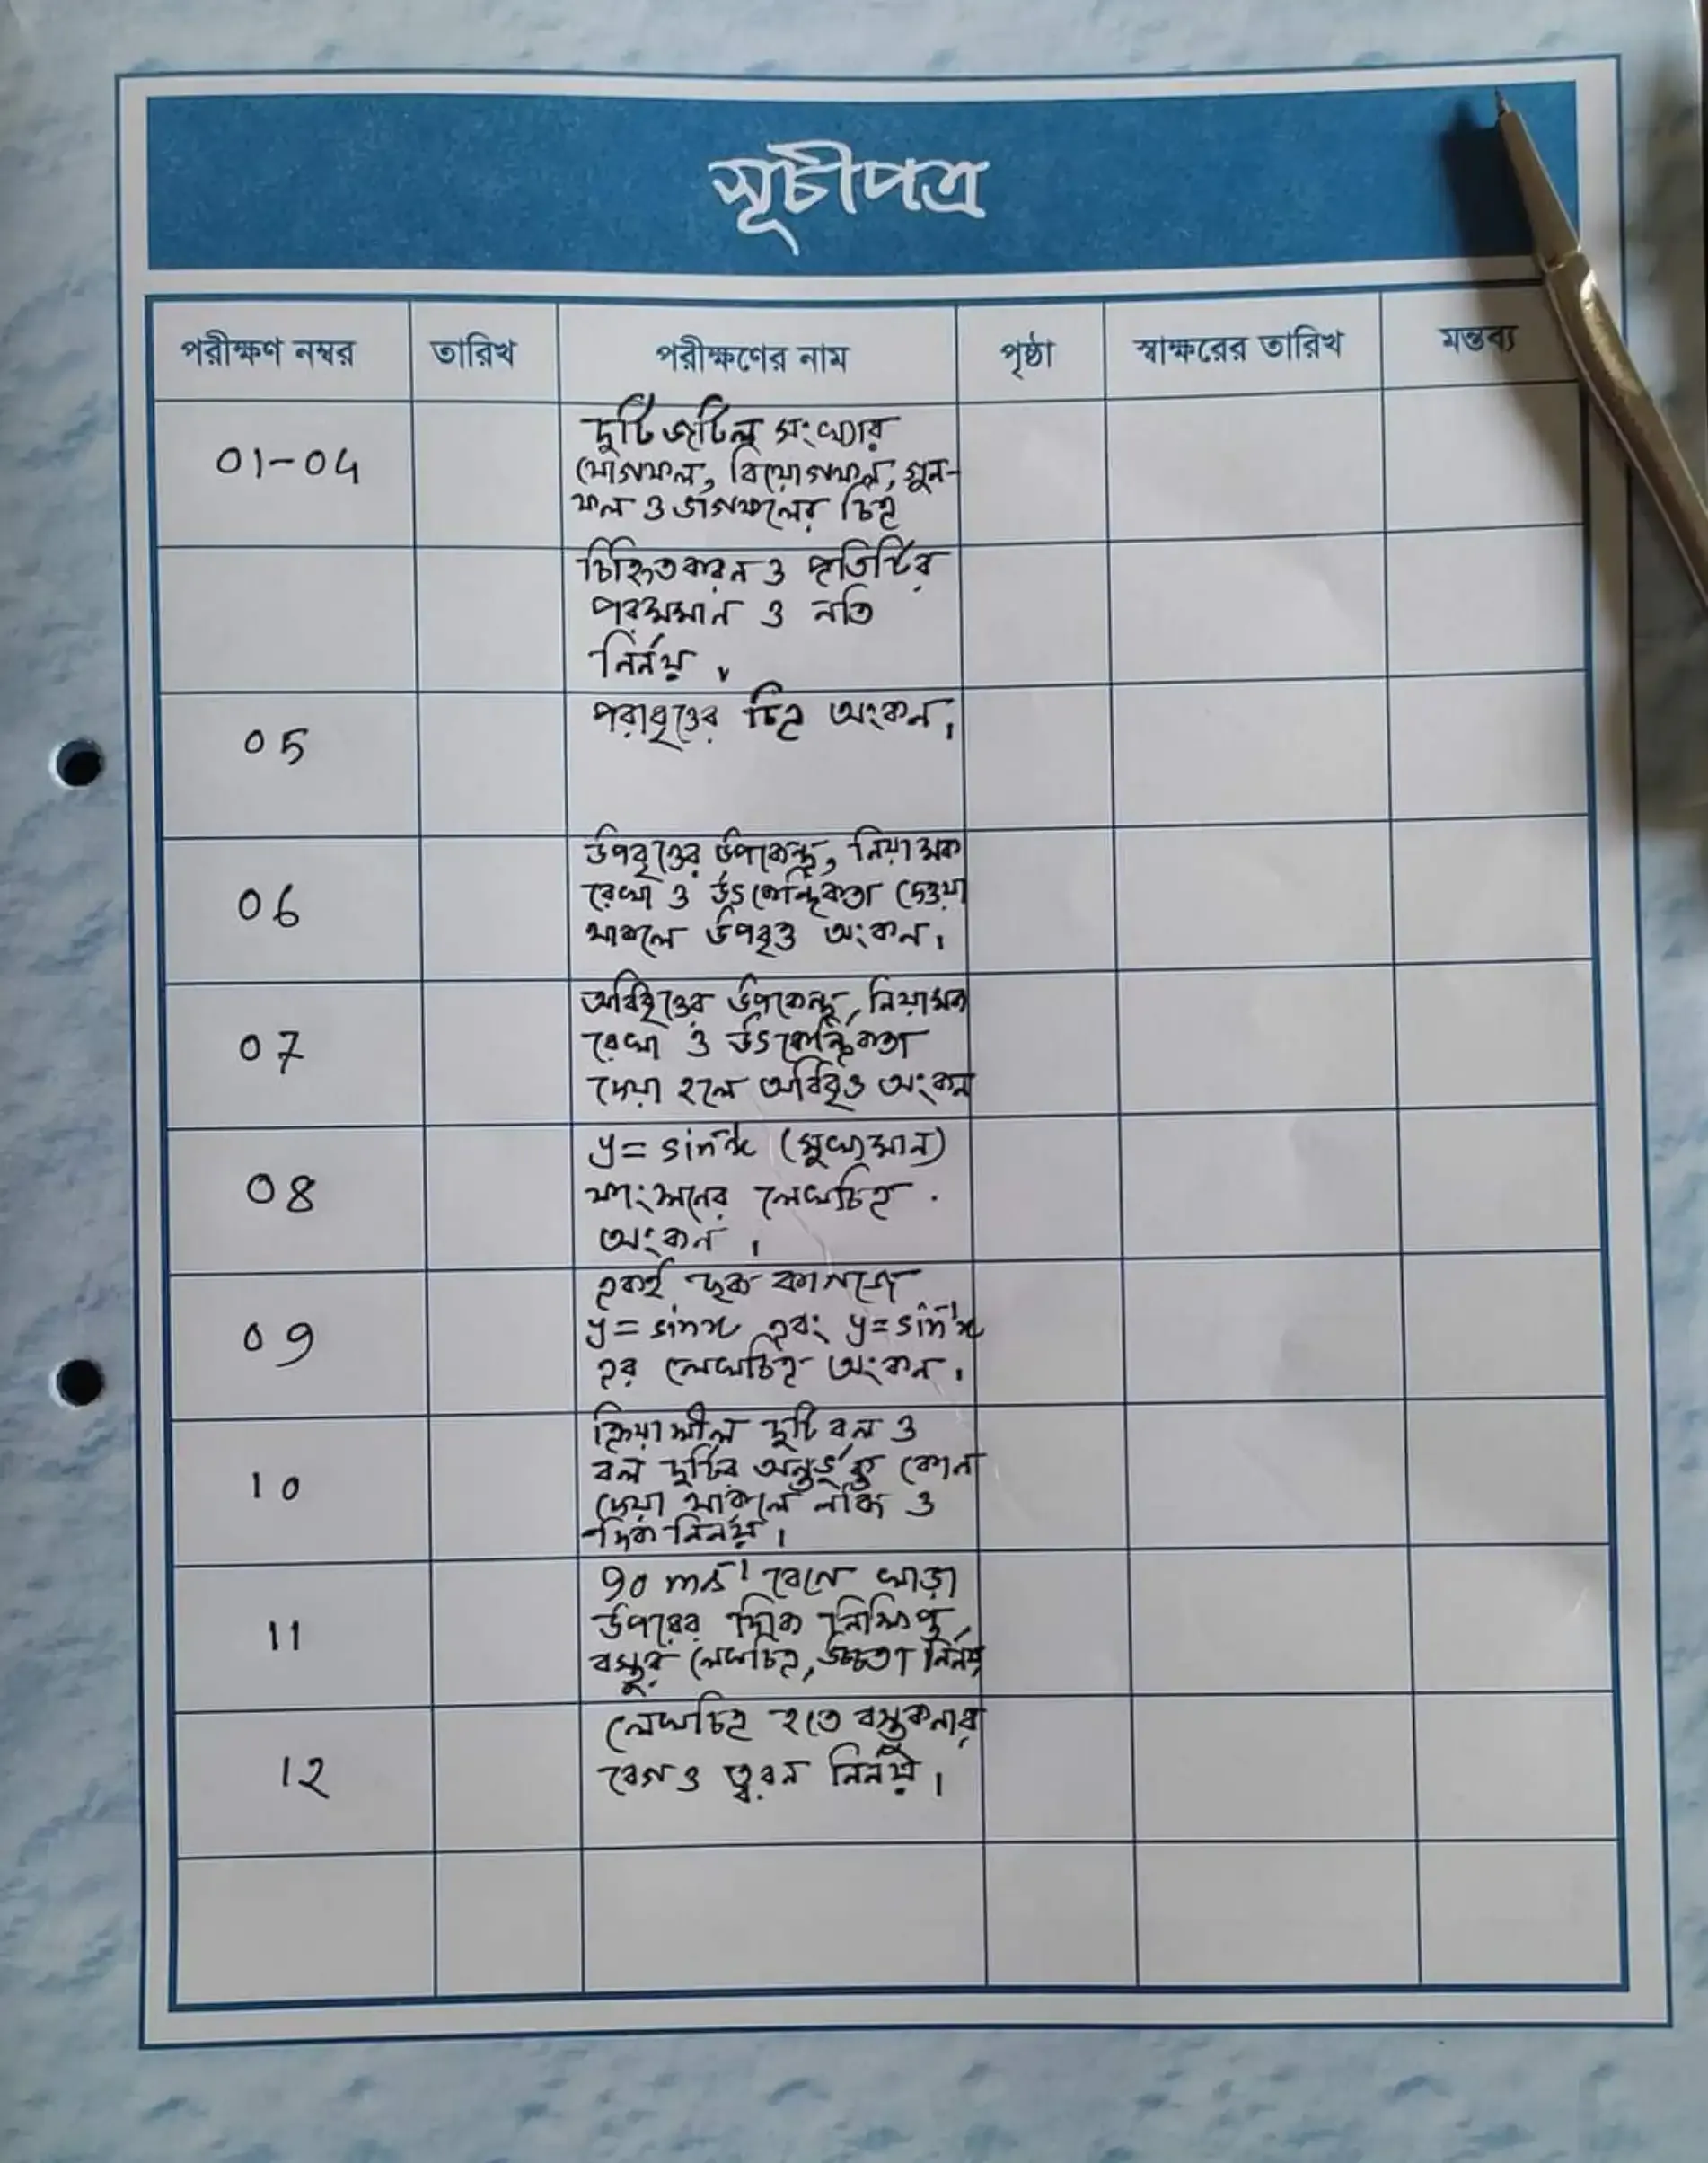 সূচীপত্র
পরীক্ষণ নম্বর তারিখ পরীক্ষণের নাম পৃষ্ঠা স্বাক্ষরের তারিখ মন্তব্য
01-04
দুটি জটিল সংখ্যার
যোগফল, বিয়োগফল, গুন-
ফল ও ভাগফলের চিত্র
চিহ্নিতকরন ও প্রতিটির
পরমমান ও নতি
নির্নয়।
05
পরাবৃত্তের চিত্র অংকন।
06
উপবৃত্তের উপকেন্দ্র, নিয়ামক
রেখা ও উৎকেন্দ্রিকতা দেওয়া
থাকলে উপবৃত্ত অংকন।
07
অধিবৃত্তের উপকেন্দ্র, নিয়ামক
রেখা ও উৎকেন্দ্রিকতা
দেয়া হলে অধিবৃত্ত অংকন
08
y = sin⁻¹x (মুখ্যমান)
ফাংশনের লেখচিত্র
অংকন।
09
একই ছক কাগজে
y = sinx এবং y = sin⁻¹x
এর লেখচিত্র অংকন।
10
ক্রিয়াশীল দুটি বল ও
বল দুটির অন্তর্ভূক্ত কোন
দেয়া থাকলে লব্ধি ও
দিক নির্নয়।
11
90 ms⁻¹ বেগে খাড়া
উপরের দিক নিক্ষিপ্ত
বস্তুর লেখচিত্র, উচ্চতা নির্নয়
12
লেখচিত্র হতে বস্তুকনার
বেগ ও ত্বরন নির্নয়।